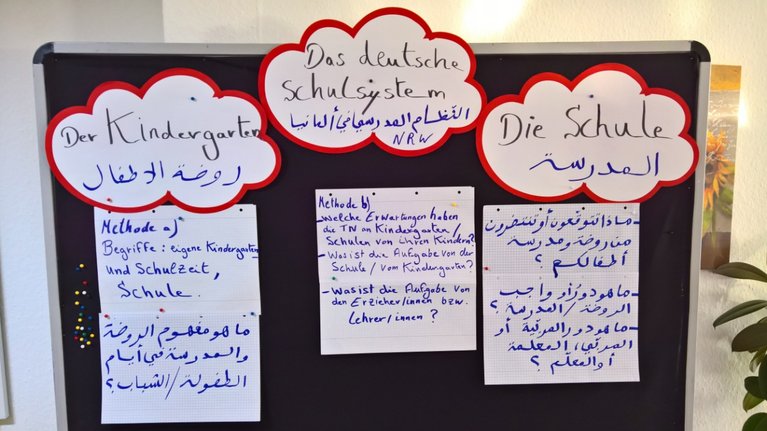 Das deutsche
Schulsystem
النظام المدرسي في ألمانيا
NRW
Der Kindergarten
روضة الاطفال
Die Schule
المدرسة
Methode a)
Begriffe: eigene Kindergarten
und Schulzeit,
Schule.
ما هو مفهوم الروضة
والمدرسة في أيام
الطفولة/الشباب؟
Methode b)
- Welche Erwartungen haben
die TN an Kindergarten/
Schulen von ihren Kindern?
- Was ist die Aufgabe von der
Schule / vom Kindergarten?
- Was ist die Aufgabe von
den Erzieher/innen bzw.
Lehrer/innen?
- ماذا تتوقعون أو تنتظرون
من روضة ومدرسة
أطفالكم؟
- ما هو دور/أو واجب
الروضة/المدرسة؟
- ما هو دور المربية أو
المربي، المعلمة
أو المعلم؟